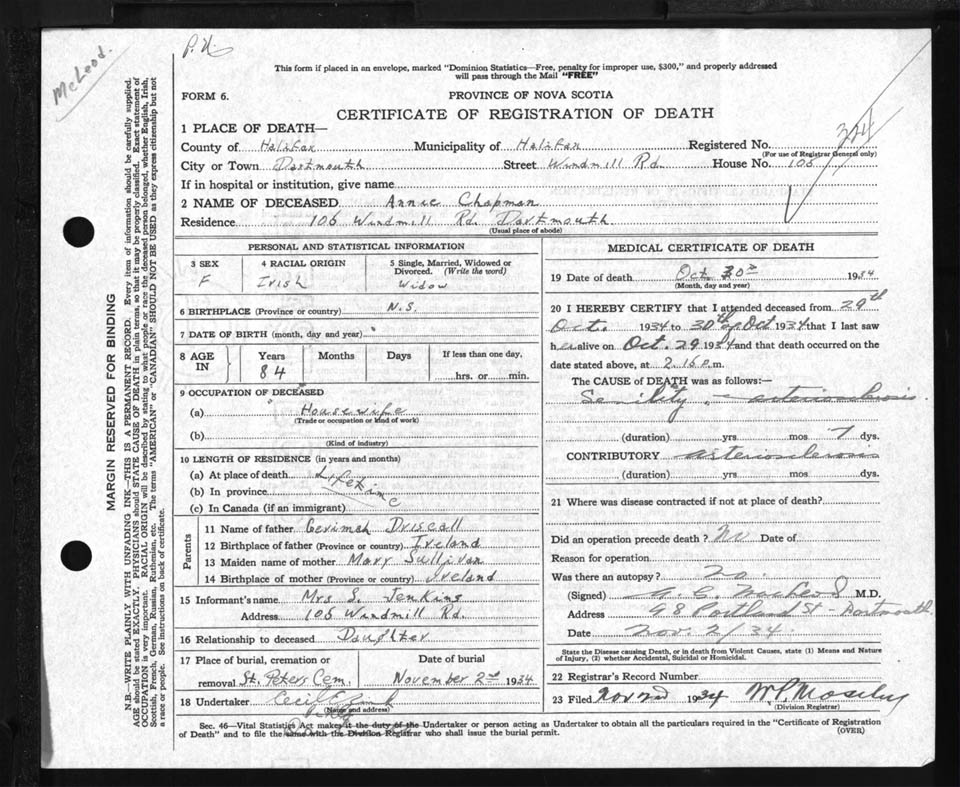 McLeod.
P.N.
This form if placed in an envelope, marked "Dominion Statistics—Free, penalty for improper use, $300," and properly addressed
will pass through the Mail "FREE"
FORM 6.
PROVINCE OF NOVA SCOTIA
CERTIFICATE OF REGISTRATION OF DEATH
1 PLACE OF DEATH—
County of Halifax Municipality of Halifax Registered No. 324
(For use of Registrar General only)
City or Town Dartmouth Street Windmill Rd. House No. 106
If in hospital or institution, give name
2 NAME OF DECEASED Annie Chapman
Residence 106 Windmill Rd. Dartmouth
(Usual place of abode)
MARGIN RESERVED FOR BINDING
N.B.—WRITE PLAINLY WITH UNFADING INK—THIS IS A PERMANENT RECORD. Every item of information should be carefully supplied.
AGE should be stated EXACTLY. PHYSICIANS should STATE CAUSE OF DEATH in plain terms, so that it may be properly classified. Exact statement of
OCCUPATION is very important. RACIAL ORIGIN will be described by stating to what people or race the deceased person belonged, whether English, Irish,
Scottish, French, German, Russian, Ruthenian, etc. The terms "AMERICAN" or "CANADIAN" SHOULD NOT BE USED as they express citizenship but not
a race or people. See instructions on back of certificate.
PERSONAL AND STATISTICAL INFORMATION
3 SEX 4 RACIAL ORIGIN 5 Single, Married, Widowed or
Divorced. (Write the word)
F Irish Widow
6 BIRTHPLACE (Province or country) N.S.
7 DATE OF BIRTH (month, day and year)
8 AGE IN Years Months Days If less than one day,
84 hrs. or min.
9 OCCUPATION OF DECEASED
(a) Housewife
(Trade or occupation or kind of work)
(b)
(Kind of industry)
10 LENGTH OF RESIDENCE (in years and months)
(a) At place of death Lifetime
(b) In province
(c) In Canada (if an immigrant)
Parents
11 Name of father Driscall
12 Birthplace of father (Province or country) Ireland
13 Maiden name of mother Mary Sullivan
14 Birthplace of mother (Province or country) Ireland
15 Informant's name Mrs S. Jenkins
Address 106 Windmill Rd.
16 Relationship to deceased Daughter
17 Place of burial, cremation or Date of burial
removal St. Peters Cem. November 2nd 1934
18 Undertaker Cecil E. Zink
(Name and address)
MEDICAL CERTIFICATE OF DEATH
19 Date of death Oct 30th 1934
(Month, day and year)
20 I HEREBY CERTIFY that I attended deceased from 29th
Oct. 1934 to 30th of Oct 1934 that I last saw
her alive on Oct. 29 1934 and that death occurred on the
date stated above, at 2.15 P.m.
The CAUSE of DEATH was as follows:—
Senility, — arteriosclerosis.
(duration) yrs. mos. 7 dys.
CONTRIBUTORY arteriosclerosis
(duration) yrs. mos. dys.
21 Where was disease contracted if not at place of death?
Did an operation precede death? No Date of
Reason for operation
Was there an autopsy? No.
(Signed) M.D.
Address 98 Portland St - Dartmouth
Date Nov. 2/34.
State the Disease causing Death, or in death from Violent Causes, state (1) Means and Nature
of Injury, (2) whether Accidental, Suicidal or Homicidal.
22 Registrar's Record Number
23 Filed Nov 2nd 1934 W.P. Moseley
(Division Registrar)
Sec. 46—Vital Statistics Act makes it the duty of the Undertaker or person acting as Undertaker to obtain all the particulars required in the "Certificate of Registration
of Death" and to file the same with the Division Registrar who shall issue the burial permit.
(OVER)